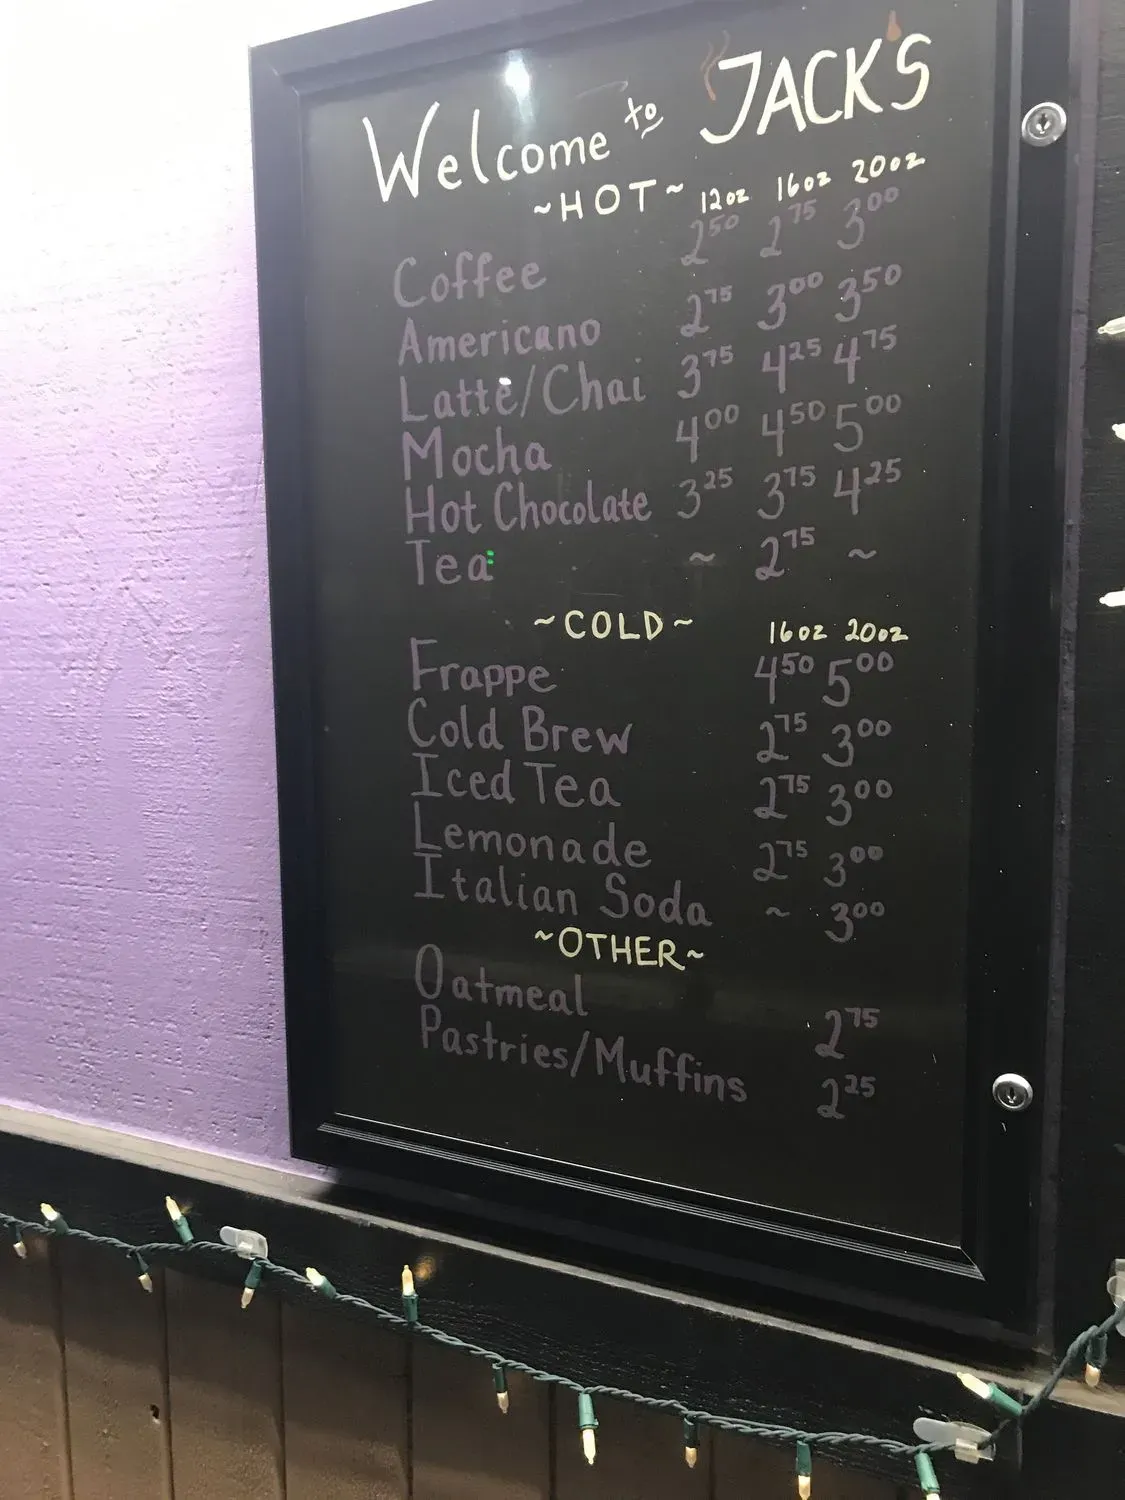 Welcome to JACK'S
~HOT~ 12oz 16oz 20oz
Coffee 2.50 2.75 3.00
Americano 2.75 3.00 3.50
Latte/Chai 3.75 4.25 4.75
Mocha 4.00 4.50 5.00
Hot Chocolate 3.25 3.75 4.25
Tea ~ 2.75 ~
~COLD~ 16oz 20oz
Frappe 4.50 5.00
Cold Brew 2.75 3.00
Iced Tea 2.75 3.00
Lemonade 2.75 3.00
Italian Soda ~ 3.00
~OTHER~
Oatmeal 2.75
Pastries/Muffins 2.25